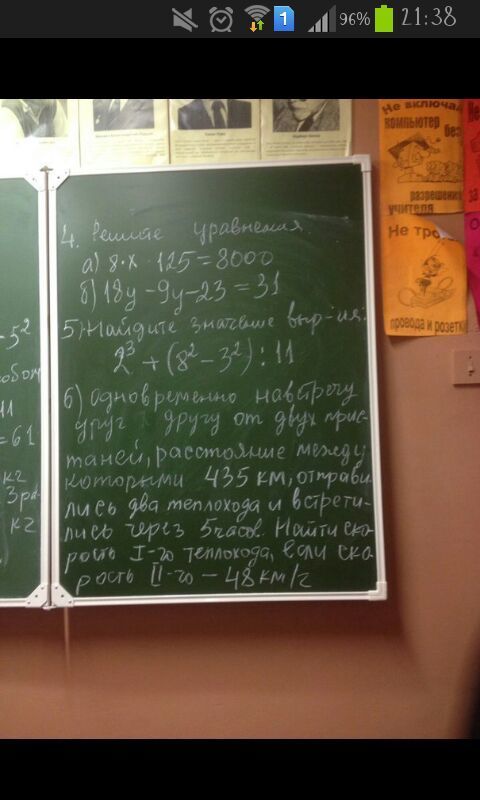 96% 21:38
Не включай
компьютер
без
разрешения
учителя
Не тро
провода и розетк
- 5²
11
= 61
кг
кг
4. Решите уравнения.
а) 8·x·125=8000
б) 18y-9y-23=31
5) Найдите значение выр-ия:
2³+(8²-3²):11
6) Одновременно навстречу
друг другу от двух прис-
таней, расстояние между
которыми 435 км, отправи
лись два теплохода и встрети-
лись через 5 часов. Найти ско-
рость I-го теплохода, если ско
рость II-го - 48 км/ч